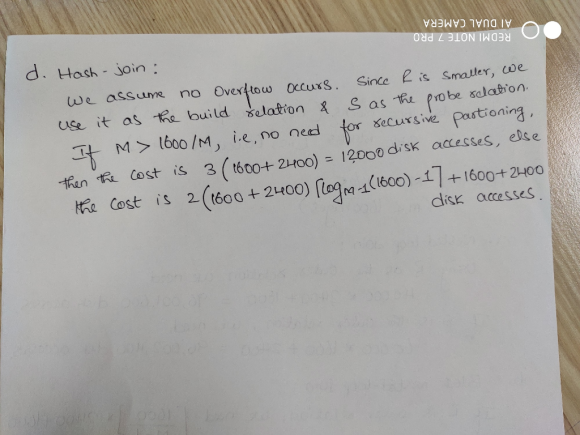 REDMI NOTE 7 PRO
AI DUAL CAMERA
d. Hash-join :
We assume no Overflow occurs. Since R is smaller, we
use it as the build relation & S as the probe relation.
If M > 1600/M, i.e, no need for recursive partioning,
then the cost is 3 (1600+2400) = 12000 disk accesses, else
the cost is 2 (1600 + 2400) ⌈log M-1 (1600) -1⌉ + 1600 + 2400
disk accesses.